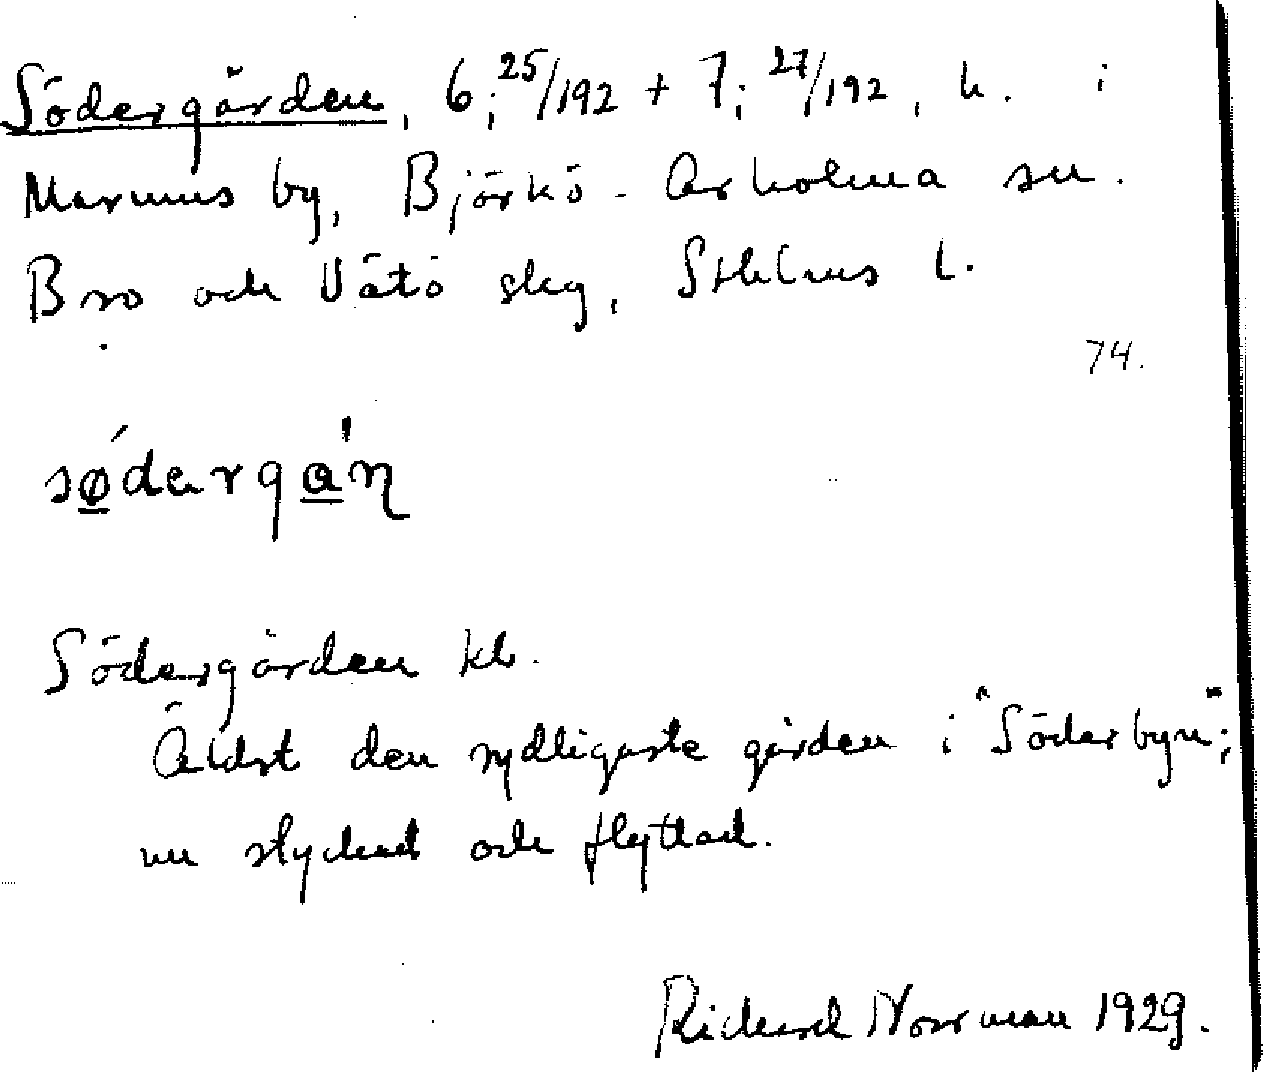 Södergården, 6; 25/192 + 7; 27/192, h. i
Marums by, Björkö-Arholma sn.
Bro och Vätö skg, Sthlms l.
74.
sǿ̱dərga̱̍ɳ
Södergården kb.
Äldst den sydligaste gården i "Söderbyn";
nu styckad och flyttad.
Richard Norrman 1929.